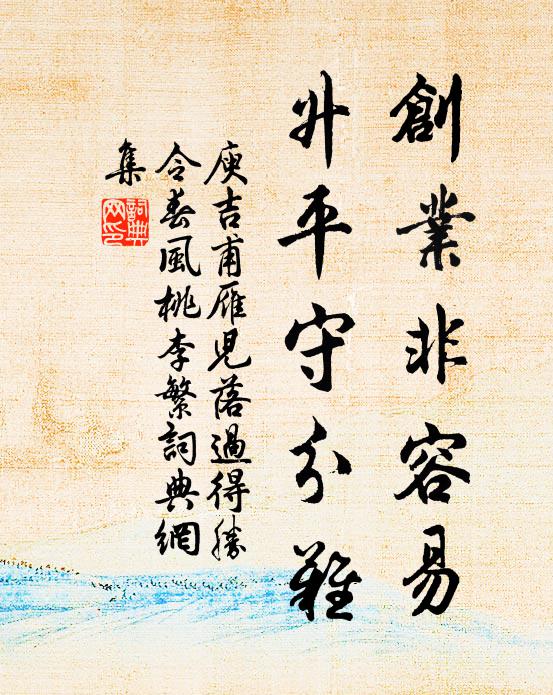 創業非容易
升平守分難
庾吉甫雁兒落過得勝
令春風桃李繁詞典網
集
詞典
网印